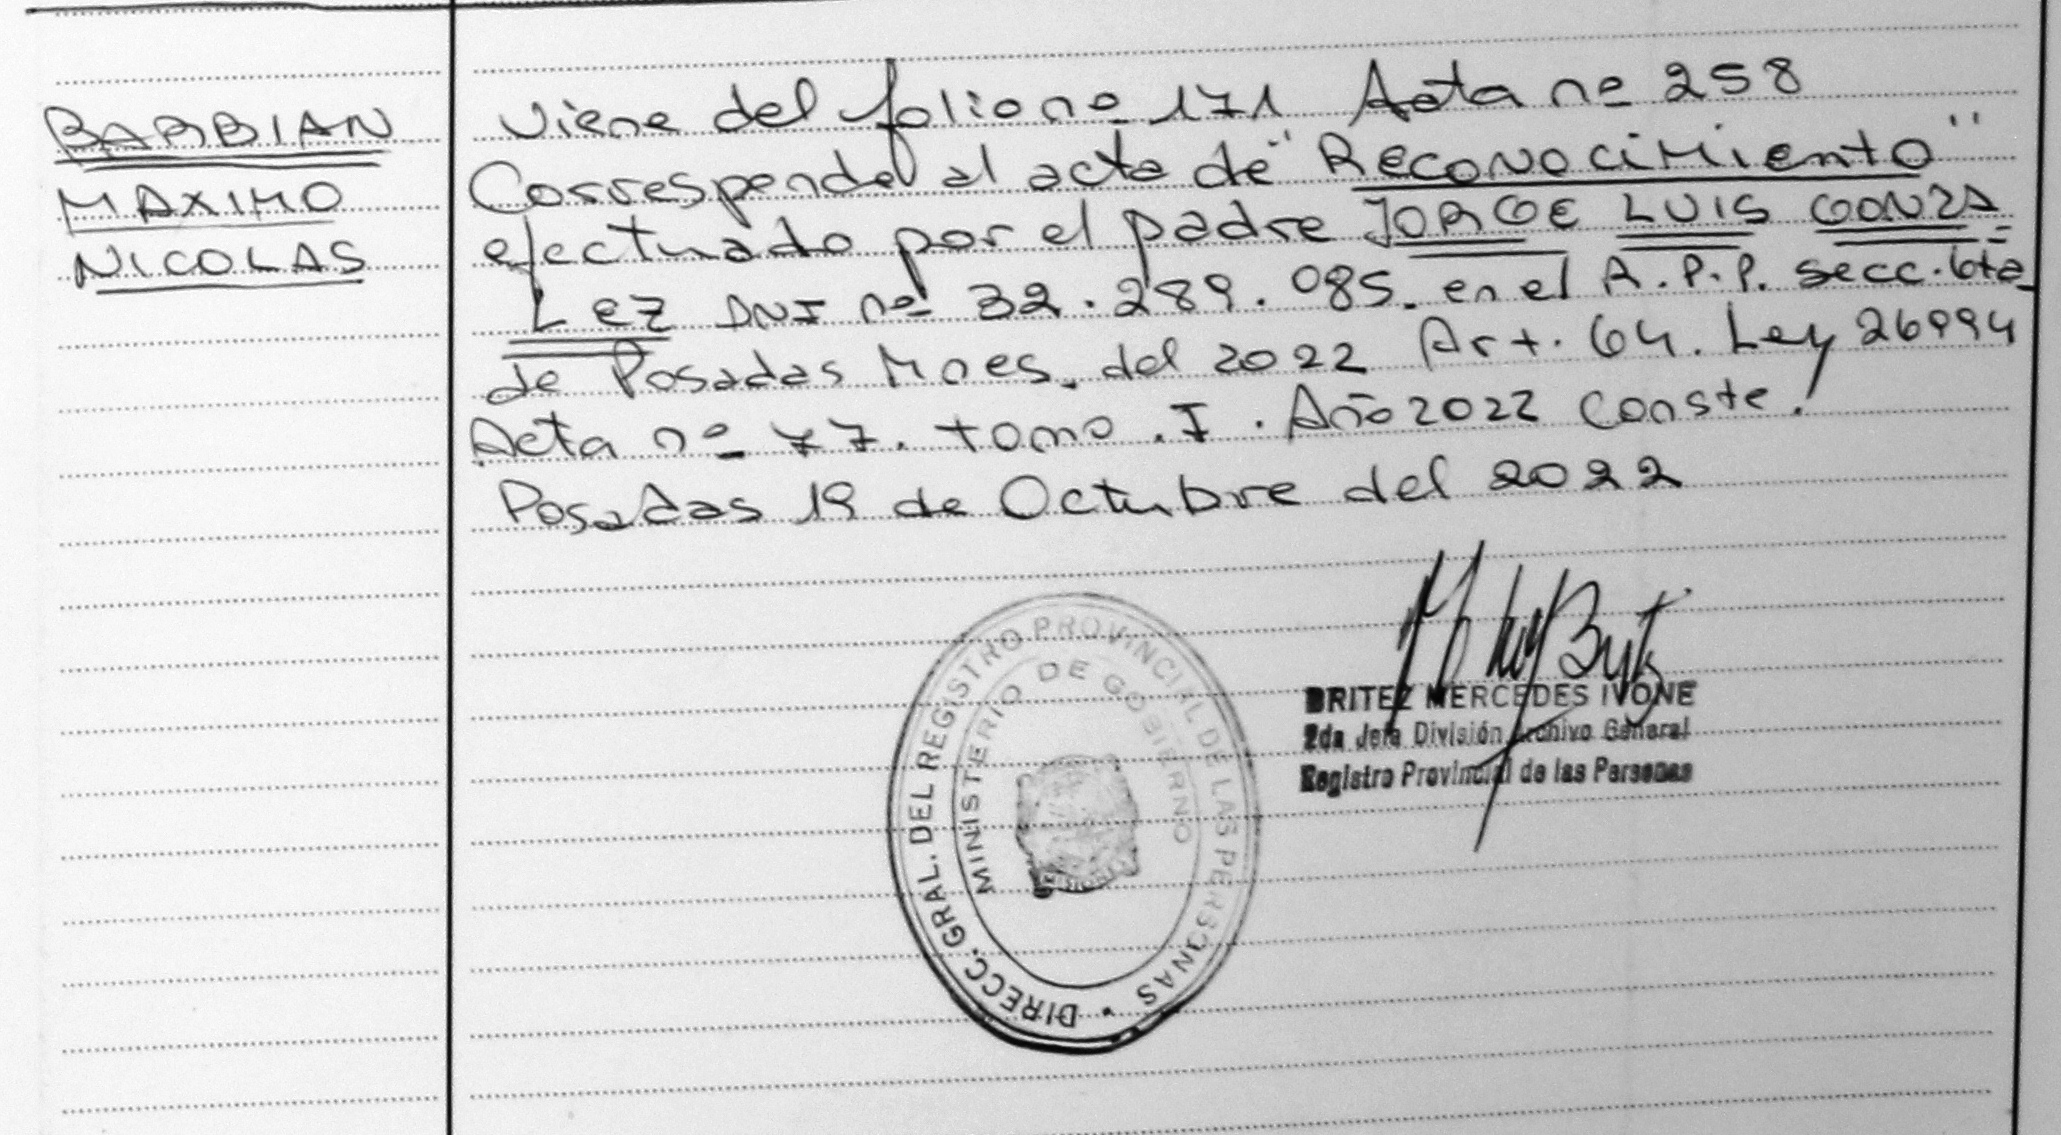 BARBIAN
MAXIMO
NICOLAS
Viene del folio nº 171 Acta nº 258
Corresponde al acta de "Reconocimiento"
efectuado por el padre JORGE LUIS GONZA=
LEZ DNI nº 32.289.085. en el R.P.P. secc. 6ta
de Posadas Mnes. del 2022 Art. 64. Ley 26994
Acta nº 77. tomo. I. Año 2022 Conste!
Posadas 19 de Octubre del 2022
DIRECC. GRAL. DEL REGISTRO PROVINCIAL DE LAS PERSONAS
MINISTERIO DE GOBIERNO
BRITEZ MERCEDES IVONE
2da Jefa División Archivo General
Registro Provincial de las Personas